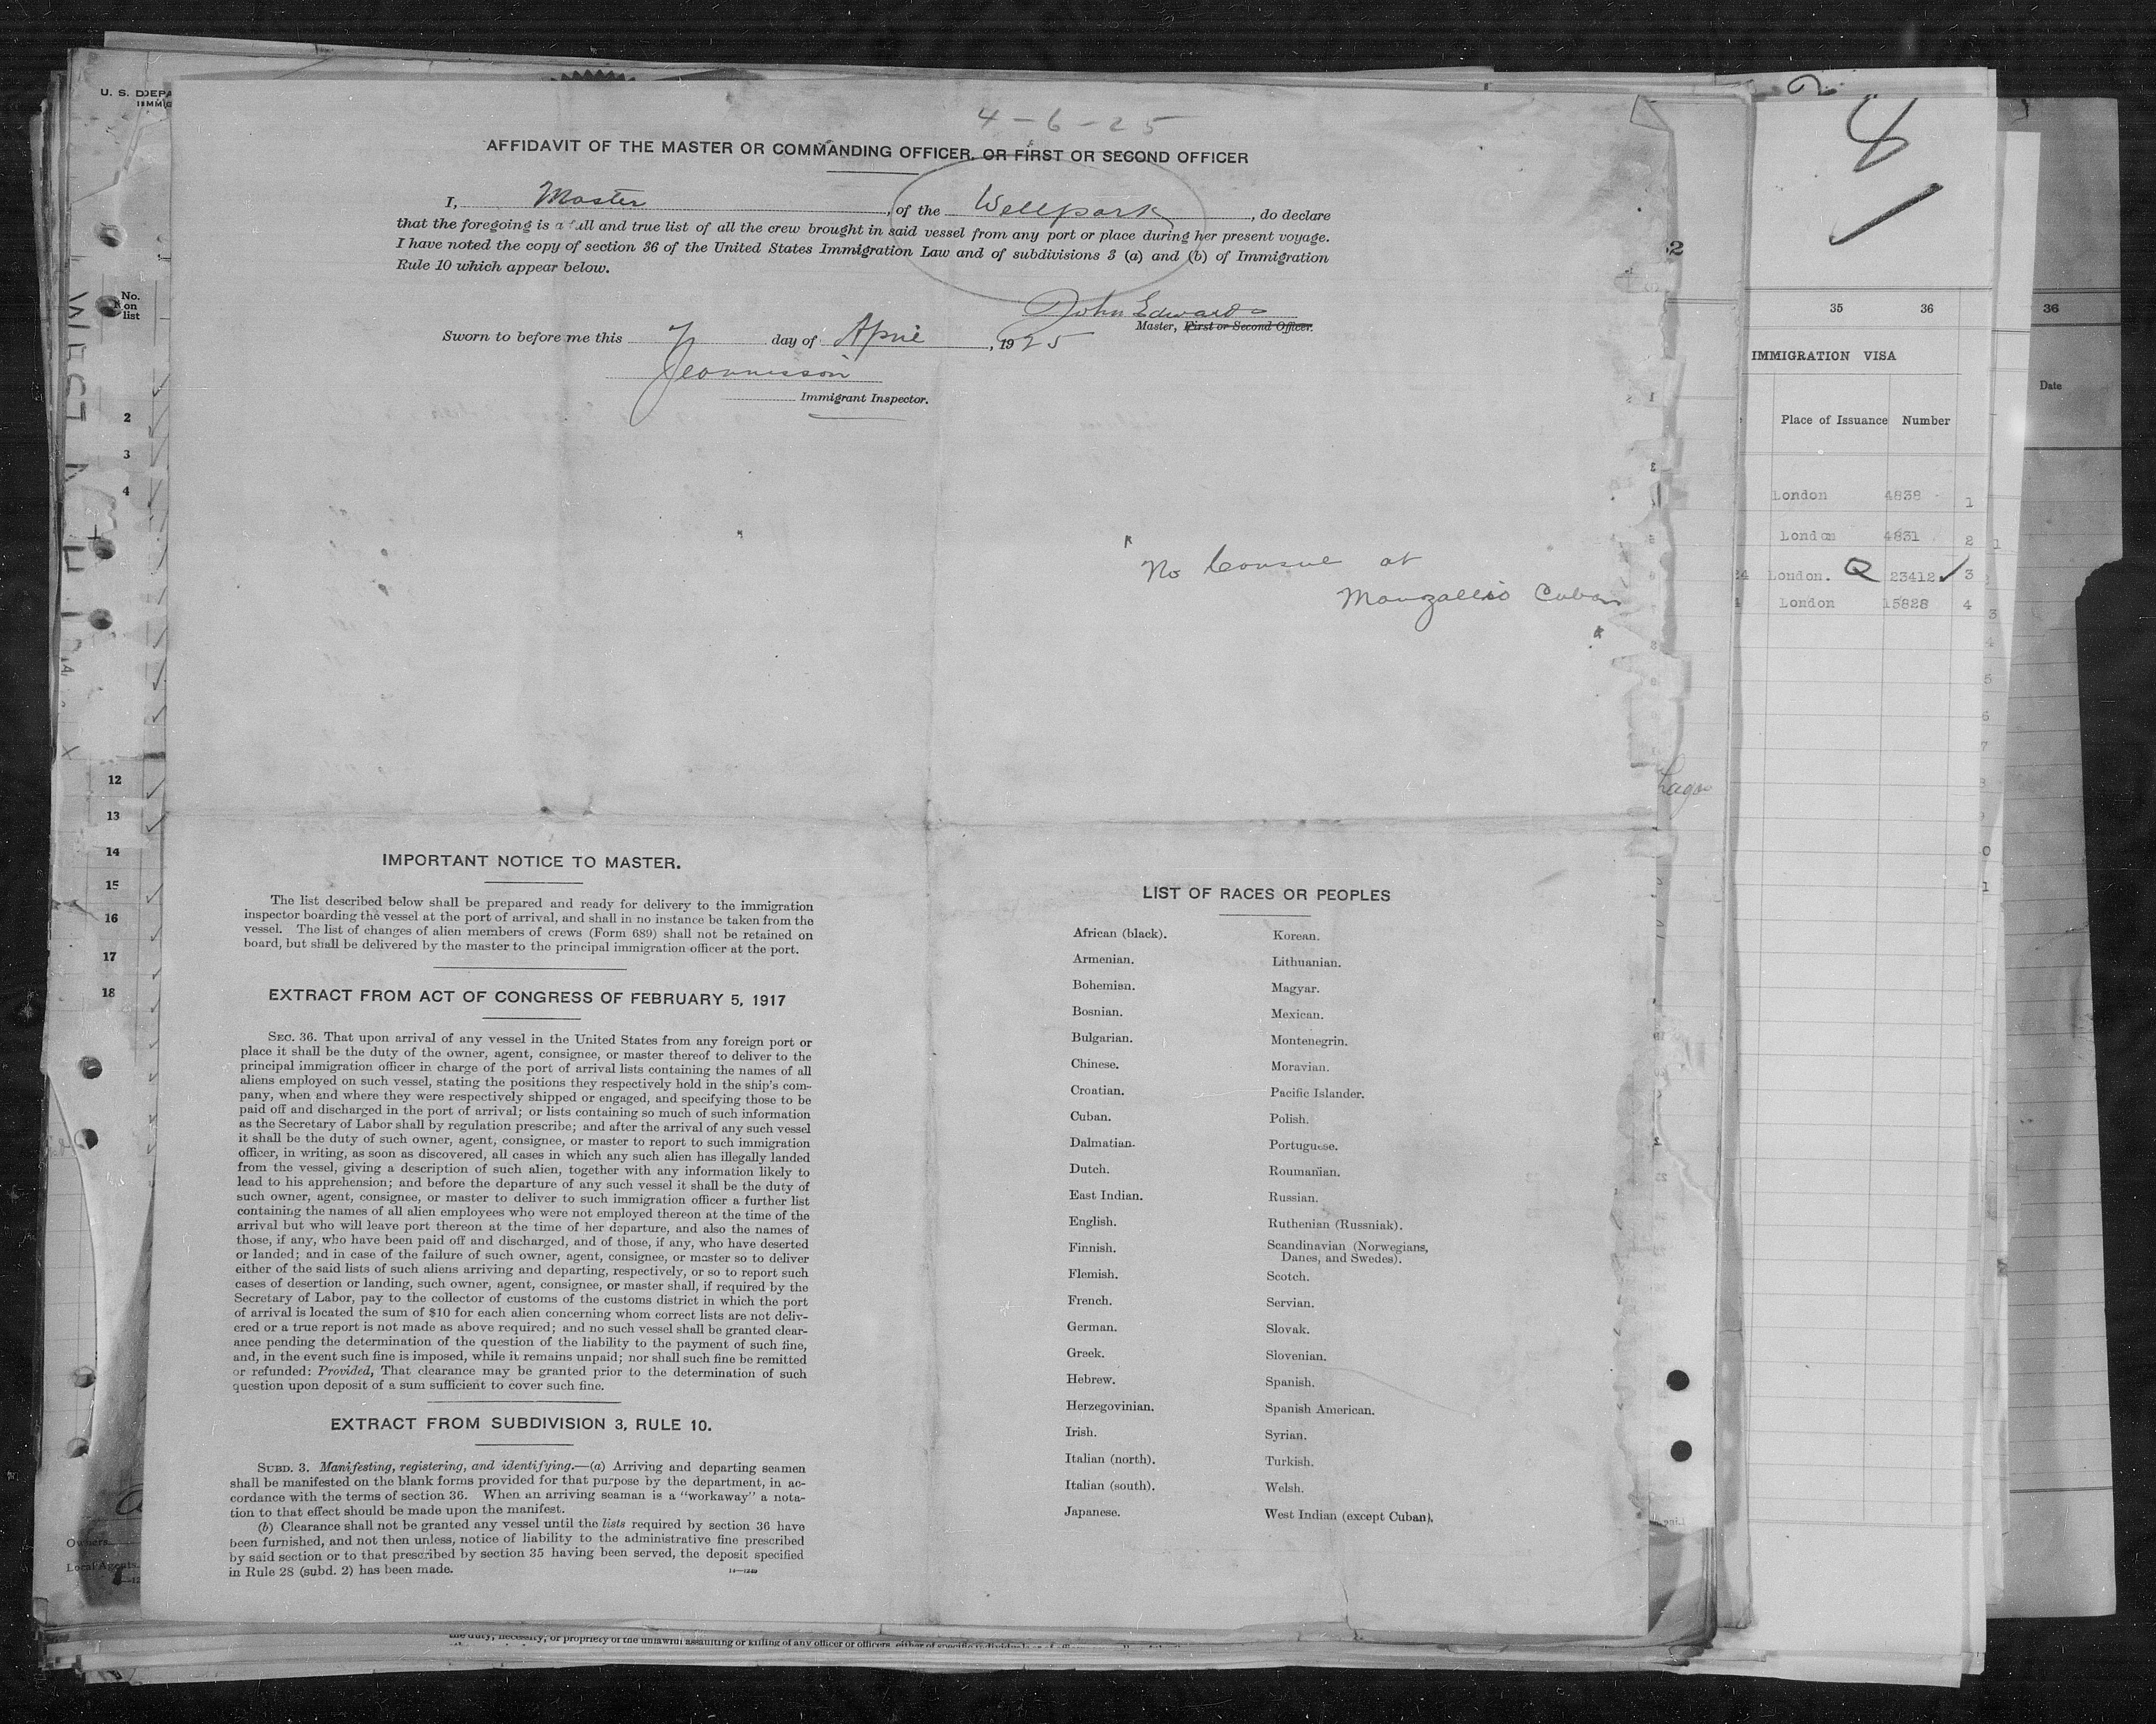 4-6-25
AFFIDAVIT OF THE MASTER OR COMMANDING OFFICER, OR FIRST OR SECOND OFFICER
I, Master, of the Wellpark, do declare
that the foregoing is a full and true list of all the crew brought in said vessel from any port or place during her present voyage.
I have noted the copy of section 36 of the United States Immigration Law and of subdivisions 3 (a) and (b) of Immigration
Rule 10 which appear below.
John Edwards
Master, First or Second Officer.
Sworn to before me this 7 day of April, 1925
Immigrant Inspector.
"No Consul at
Manzallio Cuba"
IMPORTANT NOTICE TO MASTER.
The list described below shall be prepared and ready for delivery to the immigration
inspector boarding the vessel at the port of arrival, and shall in no instance be taken from the
vessel. The list of changes of alien members of crews (Form 689) shall not be retained on
board, but shall be delivered by the master to the principal immigration officer at the port.
EXTRACT FROM ACT OF CONGRESS OF FEBRUARY 5, 1917
SEC. 36. That upon arrival of any vessel in the United States from any foreign port or
place it shall be the duty of the owner, agent, consignee, or master thereof to deliver to the
principal immigration officer in charge of the port of arrival lists containing the names of all
aliens employed on such vessel, stating the positions they respectively hold in the ship's com-
pany, when and where they were respectively shipped or engaged, and specifying those to be
paid off and discharged in the port of arrival; or lists containing so much of such information
as the Secretary of Labor shall by regulation prescribe; and after the arrival of any such vessel
it shall be the duty of such owner, agent, consignee, or master to report to such immigration
officer, in writing, as soon as discovered, all cases in which any such alien has illegally landed
from the vessel, giving a description of such alien, together with any information likely to
lead to his apprehension; and before the departure of any such vessel it shall be the duty of
such owner, agent, consignee, or master to deliver to such immigration officer a further list
containing the names of all alien employees who were not employed thereon at the time of the
arrival but who will leave port thereon at the time of her departure, and also the names of
those, if any, who have been paid off and discharged, and of those, if any, who have deserted
or landed; and in case of the failure of such owner, agent, consignee, or master so to deliver
either of the said lists of such aliens arriving and departing, respectively, or so to report such
cases of desertion or landing, such owner, agent, consignee, or master shall, if required by the
Secretary of Labor, pay to the collector of customs of the customs district in which the port
of arrival is located the sum of $10 for each alien concerning whom correct lists are not deliv-
ered or a true report is not made as above required; and no such vessel shall be granted clear-
ance pending the determination of the question of the liability to the payment of such fine,
and, in the event such fine is imposed, while it remains unpaid; nor shall such fine be remitted
or refunded: Provided, That clearance may be granted prior to the determination of such
question upon deposit of a sum sufficient to cover such fine.
EXTRACT FROM SUBDIVISION 3, RULE 10.
SUBD. 3. Manifesting, registering, and identifying.—(a) Arriving and departing seamen
shall be manifested on the blank forms provided for that purpose by the department, in ac-
cordance with the terms of section 36. When an arriving seaman is a "workaway" a nota-
tion to that effect should be made upon the manifest.
(b) Clearance shall not be granted any vessel until the lists required by section 36 have
been furnished, and not then unless, notice of liability to the administrative fine prescribed
by said section or to that prescribed by section 35 having been served, the deposit specified
in Rule 28 (subd. 2) has been made.
LIST OF RACES OR PEOPLES
African (black). Korean.
Armenian. Lithuanian.
Bohemian. Magyar.
Bosnian. Mexican.
Bulgarian. Montenegrin.
Chinese. Moravian.
Croatian. Pacific Islander.
Cuban. Polish.
Dalmatian. Portuguese.
Dutch. Roumanian.
East Indian. Russian.
English. Ruthenian (Russniak).
Finnish. Scandinavian (Norwegians,
Danes, and Swedes).
Flemish. Scotch.
French. Servian.
German. Slovak.
Greek. Slovenian.
Hebrew. Spanish.
Herzegovinian. Spanish American.
Irish. Syrian.
Italian (north). Turkish.
Italian (south). Welsh.
Japanese. West Indian (except Cuban).
No.
on
list
2
3
4
12
13
14
15
16
17
18
Owners
Local Agents
35 36
IMMIGRATION VISA
Place of Issuance Number
London 4838 1
London 4831 2
London. 23412 3
London 15828 4
36
Date